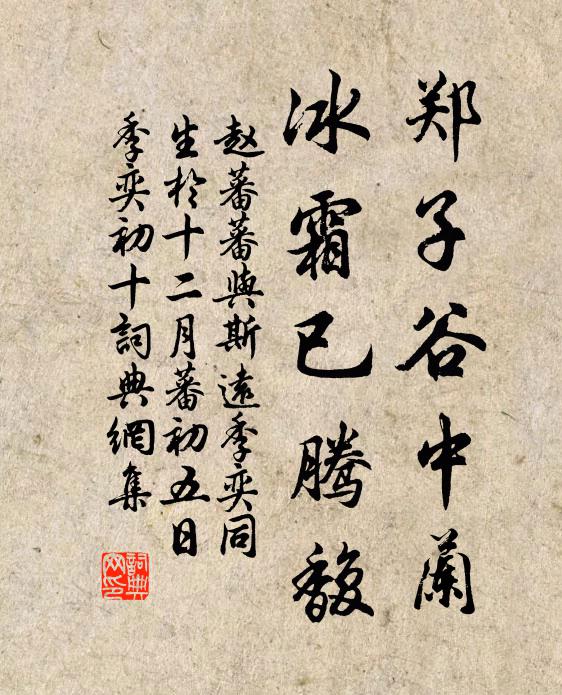 郑子谷中蘭
冰霜已腾馥
赵蕃蕃與斯遠季奕同
生於十二月蕃初五日
季奕初十詞典網集
詞典
网印